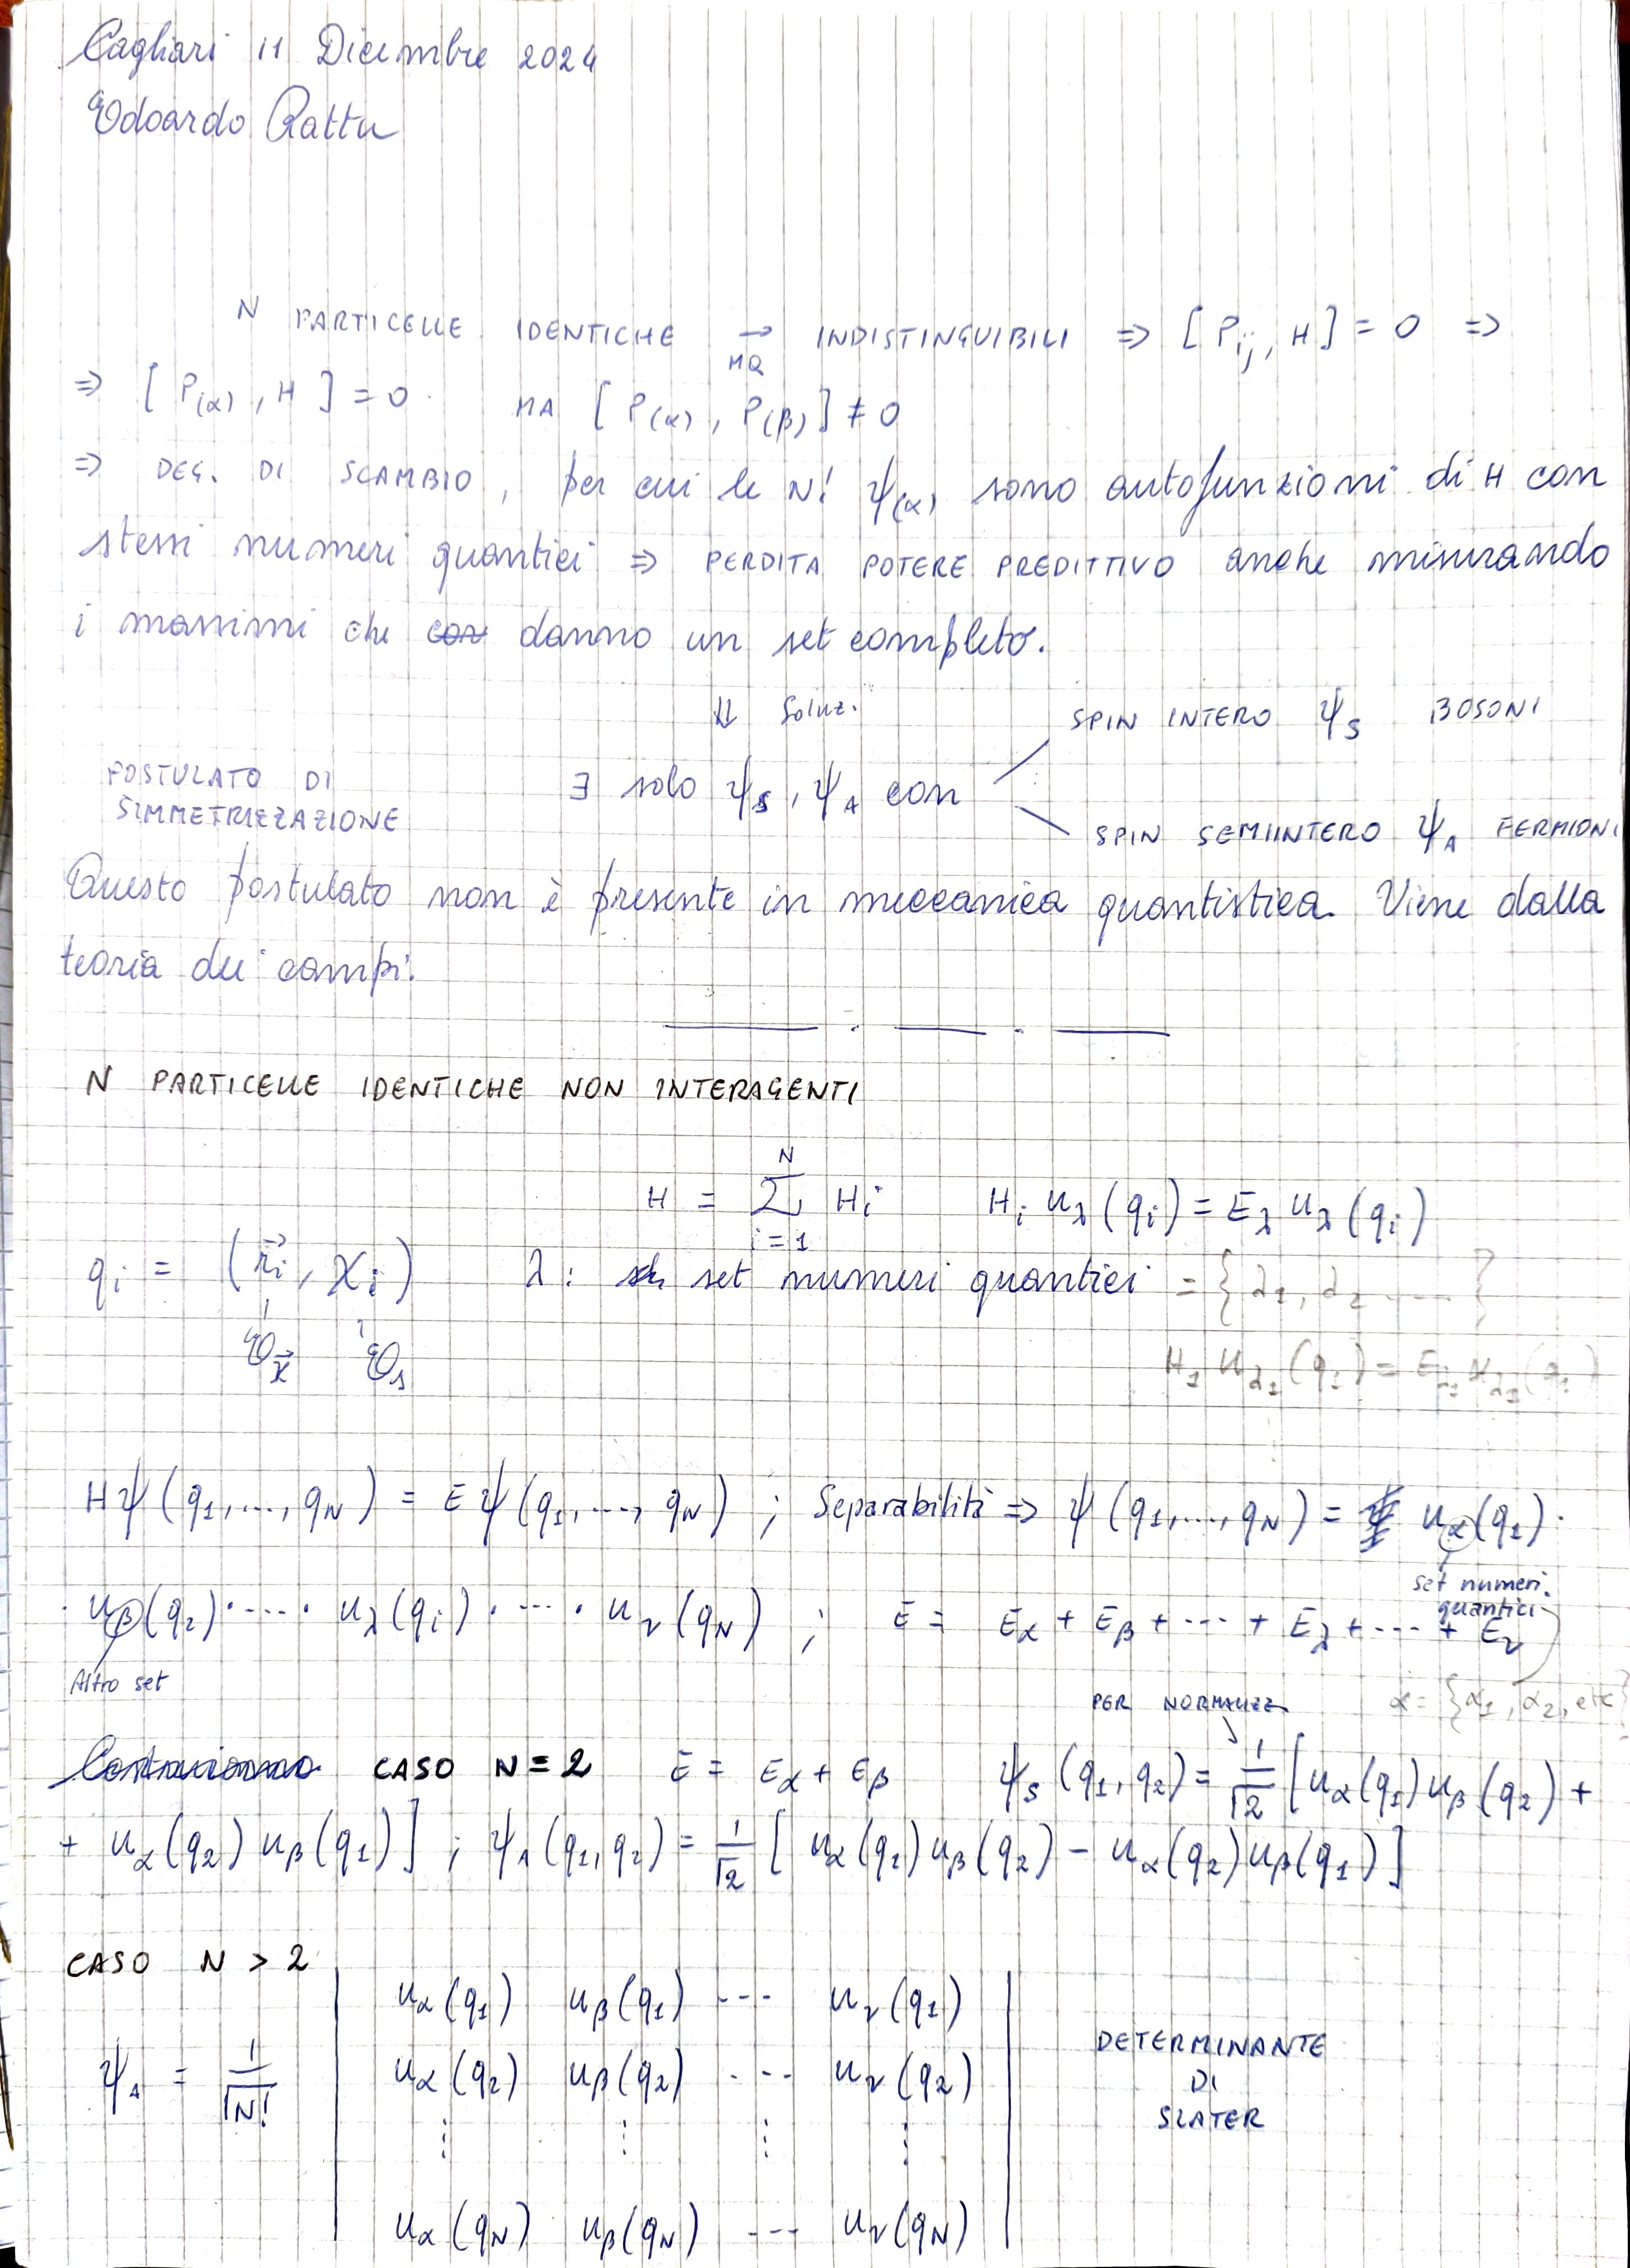 Cagliari 11 Dicembre 2024
Edoardo Rattu
N PARTICELLE IDENTICHE → INDISTINGUIBILI ⇒ [P_ij, H] = 0 ⇒
MQ
⇒ [P_(α), H] = 0 MA [P_(α), P_(β)] ≠ 0
⇒ DEG. DI SCAMBIO, per cui le N! ψ_(α) sono autofunzioni di H con
stessi numeri quantici ⇒ PERDITA POTERE PREDITTIVO anche misurando
i massimi che danno un set completo.
⇓ Soluz.
SPIN INTERO ψ_S BOSONI
POSTULATO DI
SIMMETRIZZAZIONE
∃ solo ψ_S, ψ_A con
SPIN SEMIINTERO ψ_A FERMIONI
Questo postulato non è presente in meccanica quantistica. Viene dalla
teoria dei campi.
N PARTICELLE IDENTICHE NON INTERAGENTI
H = Σ_{i=1}^{N} H_i H_i u_λ(q_i) = E_λ u_λ(q_i)
q_i = (r⃗_i, χ_i) λ: set numeri quantici = {λ_1, λ_2 .....}
H_1 u_λ1(q_1) = E_λ1 u_λ1(q_1)
Hψ(q_1,...,q_N) = Eψ(q_1,...,q_N) ; Separabilità ⇒ ψ(q_1,...,q_N) = u_α(q_1)·
set numeri
quantici
· u_β(q_2)·····u_λ(q_i)·····u_ν(q_N) ; E = E_α + E_β + ··· + E_λ + ··· + E_ν
Altro set
PER NORMALIZZ α = {α_1, α_2, etc}
CASO N = 2 E = E_α + E_β ψ_S(q_1, q_2) = 1/√2 [u_α(q_1) u_β(q_2) +
+ u_α(q_2) u_β(q_1)] ; ψ_A(q_1, q_2) = 1/√2 [u_α(q_1) u_β(q_2) − u_α(q_2) u_β(q_1)]
CASO N > 2
u_α(q_1) u_β(q_1) --- u_ν(q_1)
ψ_A = 1/√N! u_α(q_2) u_β(q_2) --- u_ν(q_2)
⋮ ⋮ ⋮ ⋮
u_α(q_N) u_β(q_N) --- u_ν(q_N)
DETERMINANTE
DI
SLATER